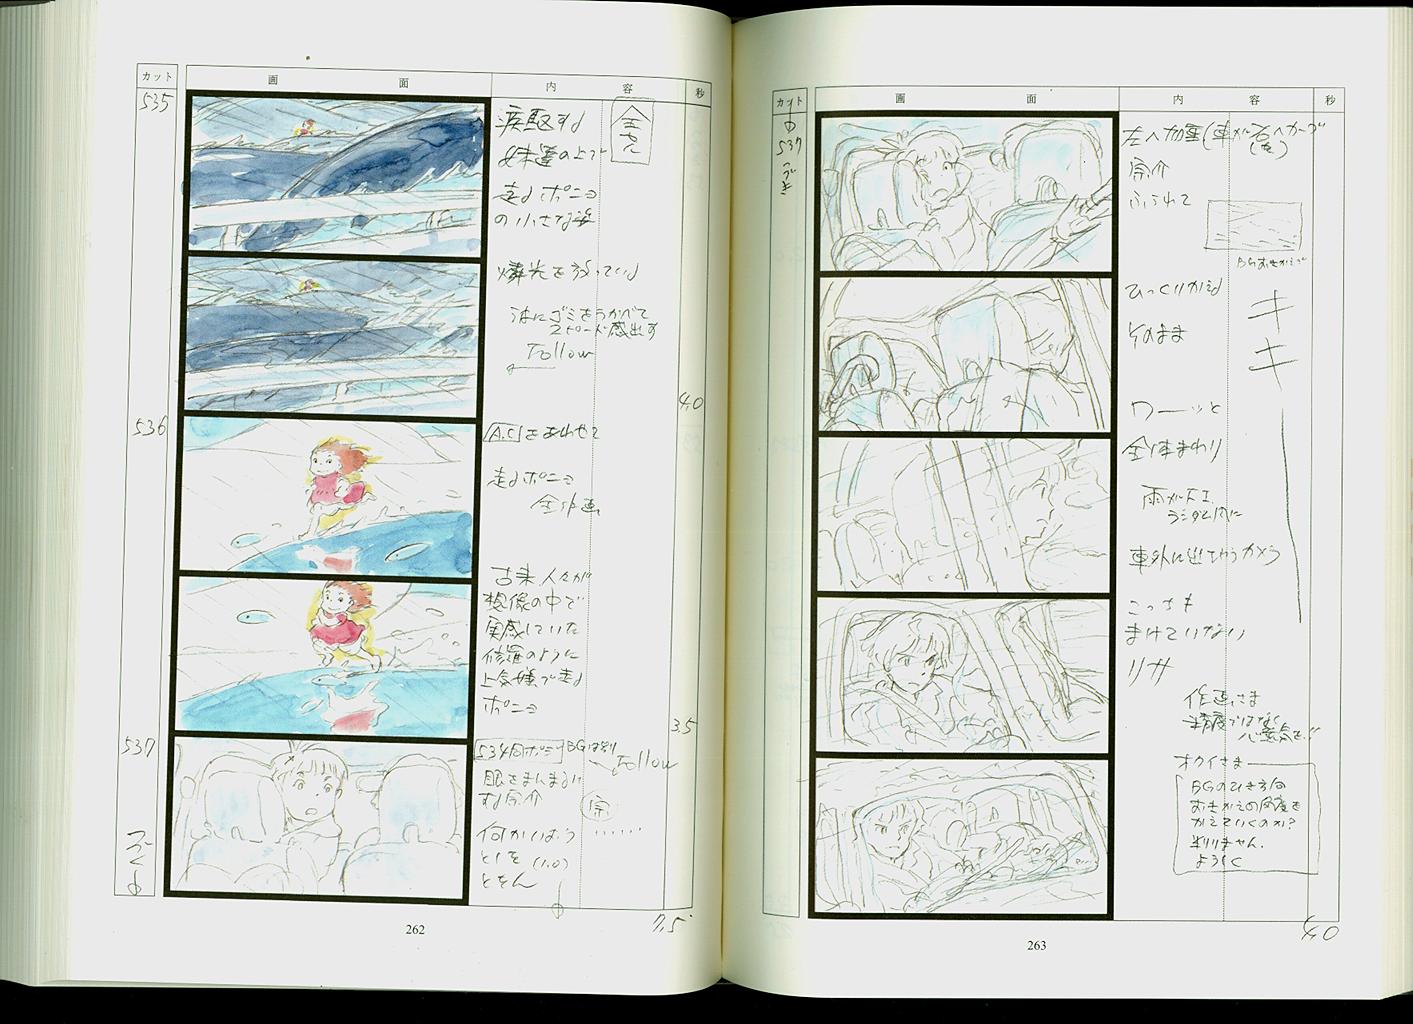 カット
画 面
内 容
秒
535
疾駆する
妹達の上で
走るポニョ
の小さな姿
燐光を放っている
波にゴミをうかべて
スピード感出す
Follow
4.0
536
A.Cをあわせて
走るポニョ
全作画
古来人々が
想像の中で
実感していた
修羅のように
上気嫌で走る
ポニョ
3.5
537
534同ポジ BGは別
Follow
眼をまんまるに
する宗介
宗
……
何かいおう
とした (1.0)
とをん
つづく
262
7.5
カット
画 面
内 容
秒
537
つづき
左へ加重(車が右へカーブ
宗介
ふられて
BGおきかえで
ひっくりかえる
そのまま
キキ
ワーッと
全体まわり
雨が大工
ランダムに
車外に出てゆくカメラ
こっちも
まけていない
リサ
作画さま
精度ではなく
心意気を!!
オクイさま
BGのひき方向
おきかえの角度を
かえていくのか?
判りません
ようしく
263
4.0